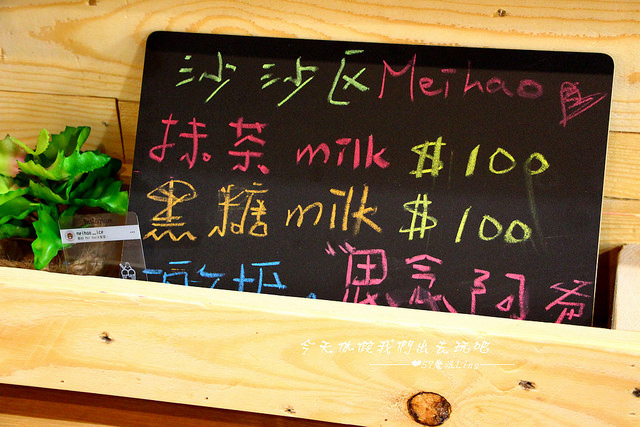 沙沙区Meihao
抹茶 milk $100
黑糖 milk $100
"思念阿爸
meihao_ice
今天休假我們出去玩吧